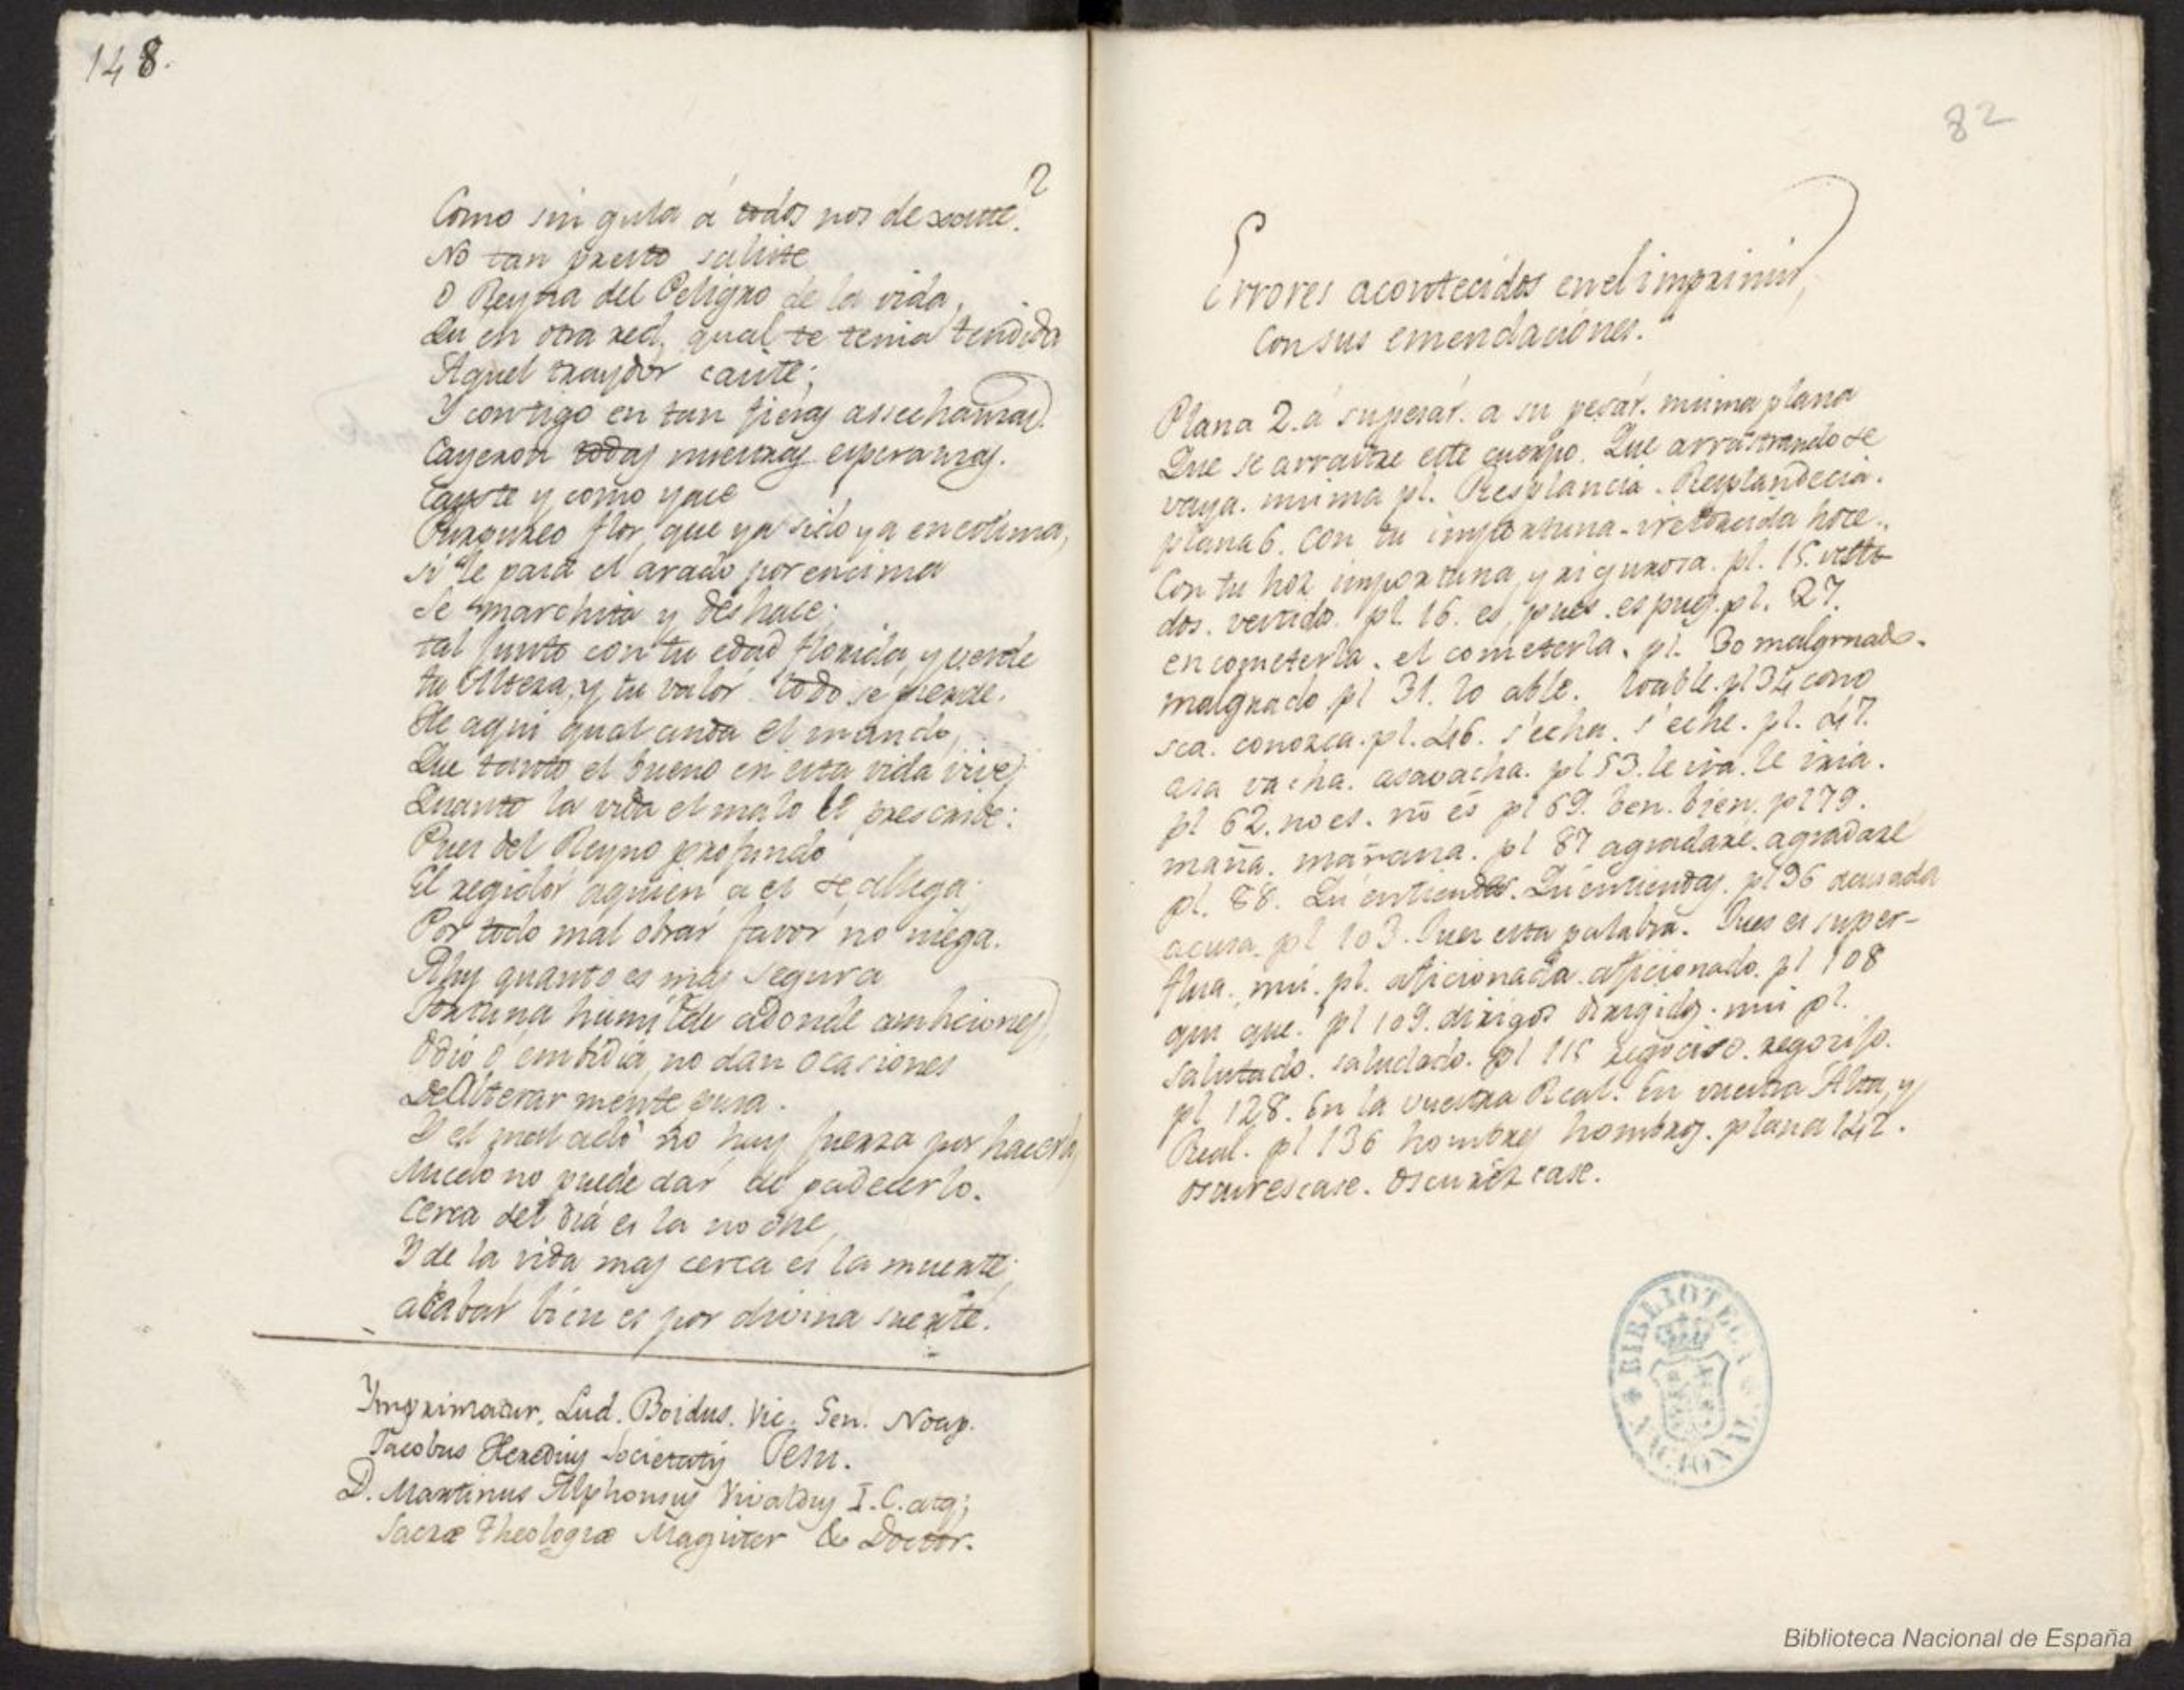 148.
Como sin guia á todos nos dexaste?
No tan presto saliste
O Reyna del Peligro de la vida,
Qu en otra red, qual te tenia tendida
Aquel traydor caiste;
Y contigo en tan fieras assechanzas
Cayeron todas nuestras esperanzas.
Caiste y como yace
Purpureo flor, que ya sido ya en estima,
si le pasa el arado por encima
Se marchita y deshace;
tal junto con tu edad florida, y verde
tu Alteza, y tu valor todo se pierde.
He aqui qual anda el mundo,
Que tanto el bueno en esta vida vive
Quanto la vida el malo le prescribe:
Pues del Reyno profundo
El regidor aquien a el se allega
Por todo mal obrar favor no niega.
Ahy quanto es mas segura
Fortuna humilde adonde ambiciones,
Odio o embidia, no dan ocasiones
De Alterar mente pura.
Y el mal adó no hay fuerza por hacerlo,
Miedo no puede dar de padecerlo.
Cerca del dia es la noche,
Y de la vida mas cerca es la muerte;
acabar bien es por divina suerte.
Ymprimatur, Lud. Boidus. Vic. Gen. Neap.
Jacobus Heredius Societatis Jesu.
D. Martinus Alphonsus Vivaldus I. C. atq;
Sacræ Theologiæ Magister & Doctor.
82
Errores acontecidos en el imprimir,
Con sus emendaciones.
Plana 2. á superár. a su pesár. misma plana
Que se arrastre este cuerpo. Que arrastrandose
vaya. misma pl. Resplancia. Resplandecia.
plana 6. Con tu importuna hoce.
Con tu hoz importuna, y rigurosa. pl. 15. vesti-
dos. vestido. pl. 16. es, pues. es pues. pl. 27.
en cometerla. el cometerla. pl. 30 malgrnado.
malgrado pl 31. lo able. loable. pl 34 cono
sca. conozca. pl. 46. s'echa. s'eche. pl. 47.
asa vacha. asavacha. pl 53. le iva. le iria.
pl 62. no es. nō es pl 69. ben. bien. pl 79.
maña. mañana. pl 87 agradaré. agradare
pl. 88. Qu entiendes. Qu entiendas. pl 96 acusada
acusa. pl 103. Pues esta palabra. Pues es super-
flua. mis. pl. aficionada. aficionado. pl 108
qui que. pl 109. dirigos dirigidos. mis pl.
salutado. saludado. pl 115 regociso. regocijo.
pl 128. En la vuestra Real. En vuestra Alta, y
Real. pl 136 hombres hombros. plana 142.
oscurescase. oscurézcase.
BIBLIOTECA NACIONAL
Biblioteca Nacional de España